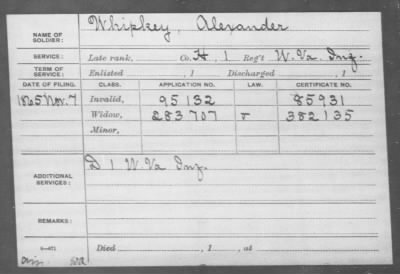 NAME OF SOLDIER: Whipkey, Alexander
SERVICE: Late rank, Co. H, 1 Reg't W. Va. Inf.
TERM OF SERVICE: Enlisted , 1 Discharged , 1
DATE OF FILING. CLASS. APPLICATION NO. LAW. CERTIFICATE NO.
1865 Nov. 7 Invalid, 95132 85931
Widow, 283707 382135
Minor,
ADDITIONAL SERVICES: D 1 W. Va Inf.
REMARKS:
Died , 1 , at